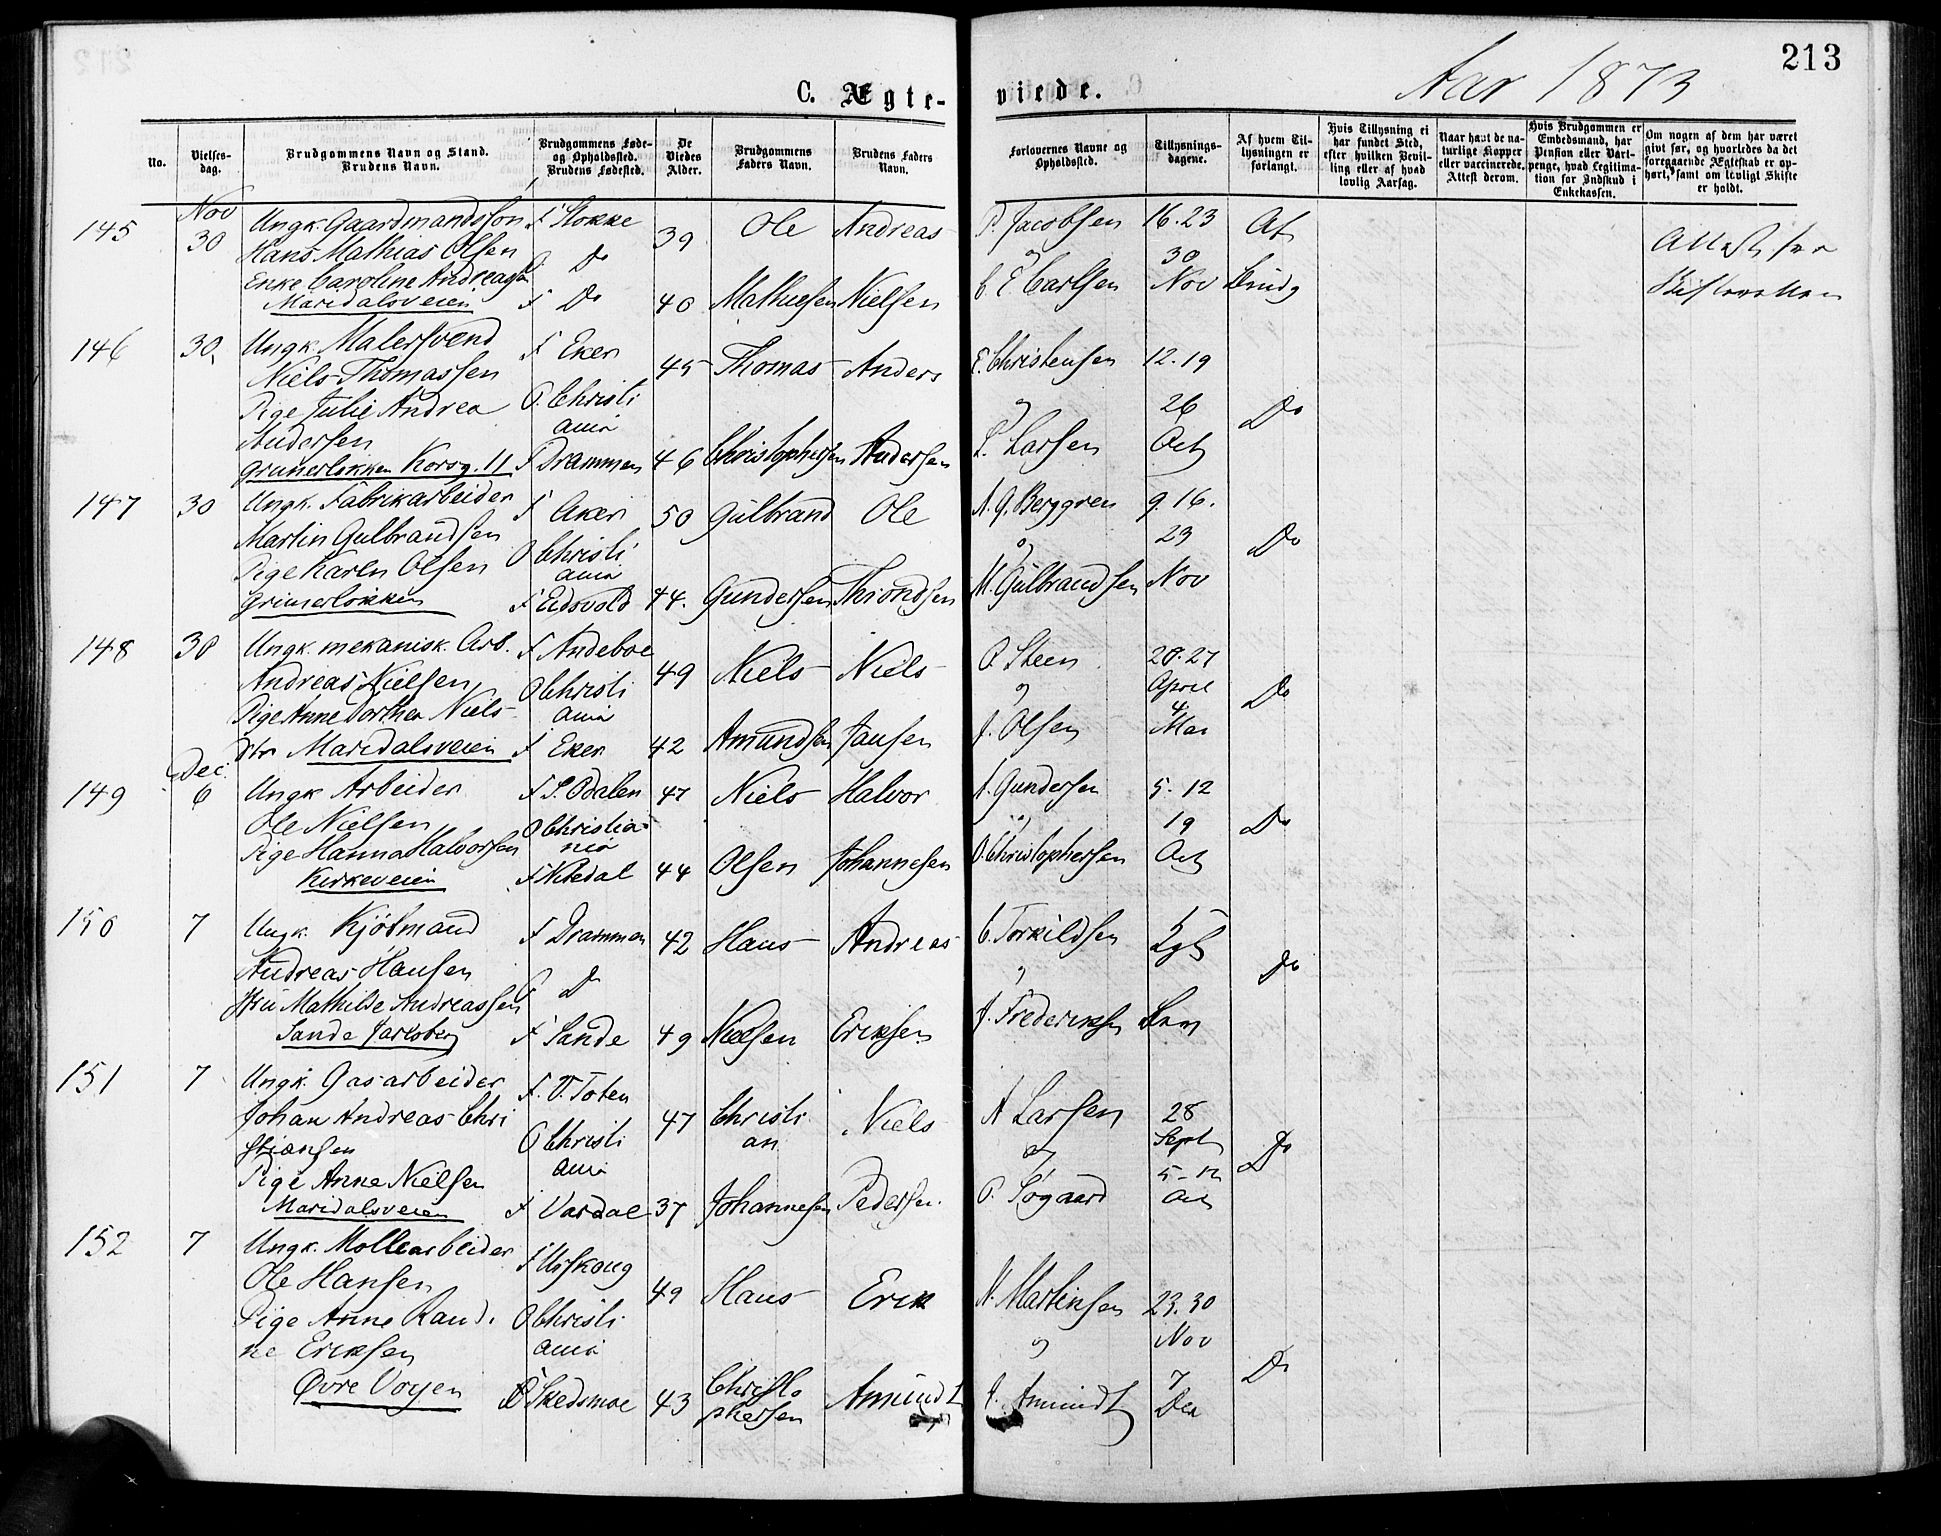 213
C. Ægte-
viede.
Aar 1873
No.
Vielses-
dag.
Brudgommens Navn og Stand.
Brudens Navn.
Brudgommens Føde-
og Opholdssted.
Brudens Fødested.
De
Viedes
Alder.
Brudgommens
Faders Navn.
Brudens Faders
Navn.
Forlovernes Navne og
Opholdssted.
Tillysnings-
dagene.
Af hvem Til-
lysningen er
forlangt.
Hvis Tillysning ei
har fundet Sted,
efter hvilken Bevil-
ling eller af hvad
lovlig Aarsag.
Naar havt de na-
turlige Kopper
eller vaccinerede.
Attest derom.
Hvis Brudgommen er
Embedsmand, har
Pension eller Vart-
penge, hvad Legitima-
tion for Indskud i
Enkekassen.
Om nogen af dem har været
givt før, og hvorledes da det
foregaaende Ægteskab er op-
hørt, samt om lovligt Skifte
er holdt.
145
Nov
30
Ungk. Gaardmandssøn
Hans Mathias Olsen
Enke Caroline Andreas
Maridalsveien
F Stokke
O. Do
F Do
39
40
Ole
Mathiesen
Andreas
Nielsen
P. Jacobsen
og
C. E. Carlsen
16. 23
30
Nov
Af
Attest for
146
30
Ungk. Malersvend
Niels Thomassen
Pige Julie Andrea
Andersen
Grunerløkken Korsg. 11
F Eker
O. Christi
ania
F Drammen
45
46
Thomas
Christophersen
Anders
Andersen
E. Christensen
og
L. Larsen
12. 19
26
Oct
Do
147
30
Ungk. Fabrikarbeider
Martin Gulbrandsen
Pige Karen Olsen
Grünerløkken
F Aker
O Christi
ania
F Eidsvold
50
44.
Gulbrand
Gundersen
Ole
Throndsen
A. G. Berggren
og
M. Gülbrandsen
9. 16.
23
Nov
Do
148
30
Ungk. mekanisk. Arb.
Andreas Nielsen
Pige Anne Dorthea Niels
dtr Maridalsveien
F Andeboe
O Christi
ania
F Eker
49
42
Niels
Amundsen
Niels
Jansen
O. Steen
og
J. Olsen
20. 27
April
4
Mai
Do
149
Dec.
6
Ungk Arbeider
Ole Nielsen
Pige Hanna Halvorsen
Kirkeveien
F S. Odalen
O Christia
nia
F Nitedal
47
44
Niels
Olsen
Halvor
Johannesen
A. Gundersen
og
O. Christophersen
5. 12
19
Oct
Do
150
7
Ungk. Kjøbmand
Andreas Hansen
Mathilde Andreassen
Sande Jarlsberg
F Drammen
O Do
F Sande
42
49
Hans
Nielsen
Andreas
Eriksen
C. Torkildsen
og
J. Frederiksen
Do
151
7
Ungk. Gasarbeider
Johan Andreas Chri
stiansen
Pige Anne Nielsen
Maridalsveien
F. V. Toten
O Christi
ania
F Vardal
47
37
Christi
an
Johannesen
Niels
Pedersen
A Larsen
og
P. Søgaard
28
Sept
5-12
Oct
Do
152
7
Ungk. Møllearbeider
Ole Hansen
Pige Anne Randi
ne Eriksen
Øvre Voyen
F Urskoug
O Christi
ania
F Skedsmoe
49
43
Hans
Christo
phersen
Erik
Amundt
N. Martinsen
og
Amundt
23. 30
Nov
7
Dec
Do